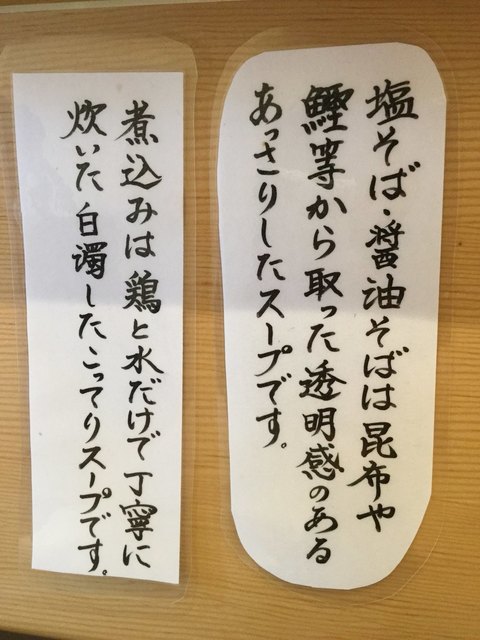 塩そば・醤油そばは昆布や
鰹等から取った透明感のある
あっさりしたスープです。
煮込みは鶏と水だけで丁寧に
炊いた白濁したこってりスープです。